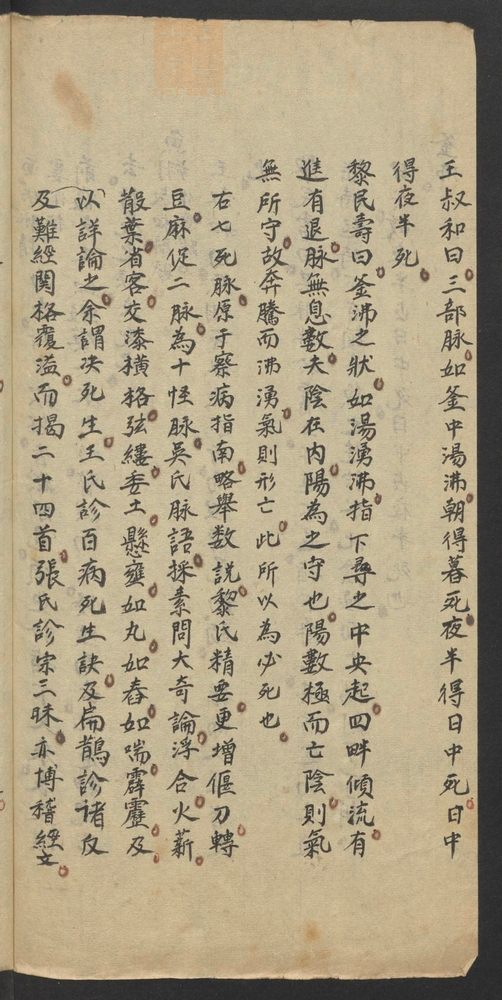 王叔和曰三部脉如釜中湯沸朝得暮死夜半得日中死日中
得夜半死
黎民壽曰釜沸之狀如湯湧沸指下尋之中央起四畔傾流有
進有退脉無息數夫陰在内陽為之守也陽數極而亡陰則氣
無所守故奔騰而沸湧氣則形亡此所以為必死也
右七死脉原于察病指南略舉数說黎氏精要更增偃刀轉
豆麻促二脉為十怪脉吳氏脉語採素問大奇論浮合火薪
散葉省客交漆横格弦縷委土懸雍如丸如舂如喘霹靂及
以詳論之余謂决死生王氏診百病死生訣及扁鵲診諸反
及難經関格覆溢而揭二十四首張氏診宗三昧亦博稽經文